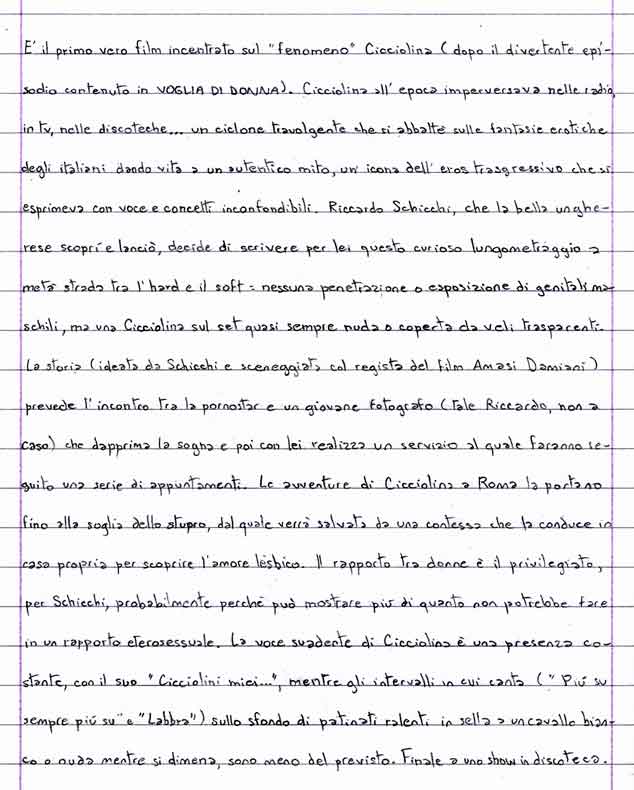 E' il primo vero film incentrato sul "fenomeno" Cicciolina (dopo il divertente epi-
sodio contenuto in VOGLIA DI DONNA). Cicciolina all'epoca imperversava nelle radio,
in tv, nelle discoteche... un ciclone travolgente che si abbatté sulle fantasie erotiche
degli italiani dando vita a un autentico mito, un'icona dell'eros trasgressivo che si
esprimeva con voce e concetti inconfondibili. Riccardo Schicchi, che la bella unghe-
rese scoprì e lanciò, decide di scrivere per lei questo curioso lungometraggio a
metà strada tra l'hard e il soft: nessuna penetrazione o esposizione di genitali ma-
schili, ma una Cicciolina sul set quasi sempre nuda o coperta da veli trasparenti.
La storia (ideata da Schicchi e sceneggiata col regista del film Amasi Damiani)
prevede l'incontro tra la pornostar e un giovane fotografo (tale Riccardo, non a
caso) che dapprima la sogna e poi con lei realizza un servizio al quale faranno se-
guito una serie di appuntamenti. Le avventure di Cicciolina a Roma la portano
fino alla soglia dello stupro, dal quale verrà salvata da una contessa che la conduce in
casa propria per scoprire l'amore lesbico. Il rapporto tra donne è il privilegiato,
per Schicchi, probabilmente perché può mostrare più di quanto non potrebbe fare
in un rapporto eterosessuale. La voce suadente di Cicciolina è una presenza co-
stante, con il suo "Cicciolini miei...", mentre gli intervalli in cui canta ("Più su
sempre più su" e "Labbra") sullo sfondo di patinati ralenti in sella a un cavallo bian-
co o nuda mentre si dimena, sono meno del previsto. Finale a uno show in discoteca.